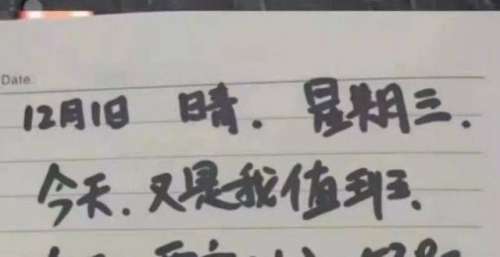 Date.
12月1日 晴. 星期三.
今天.又是我值班.